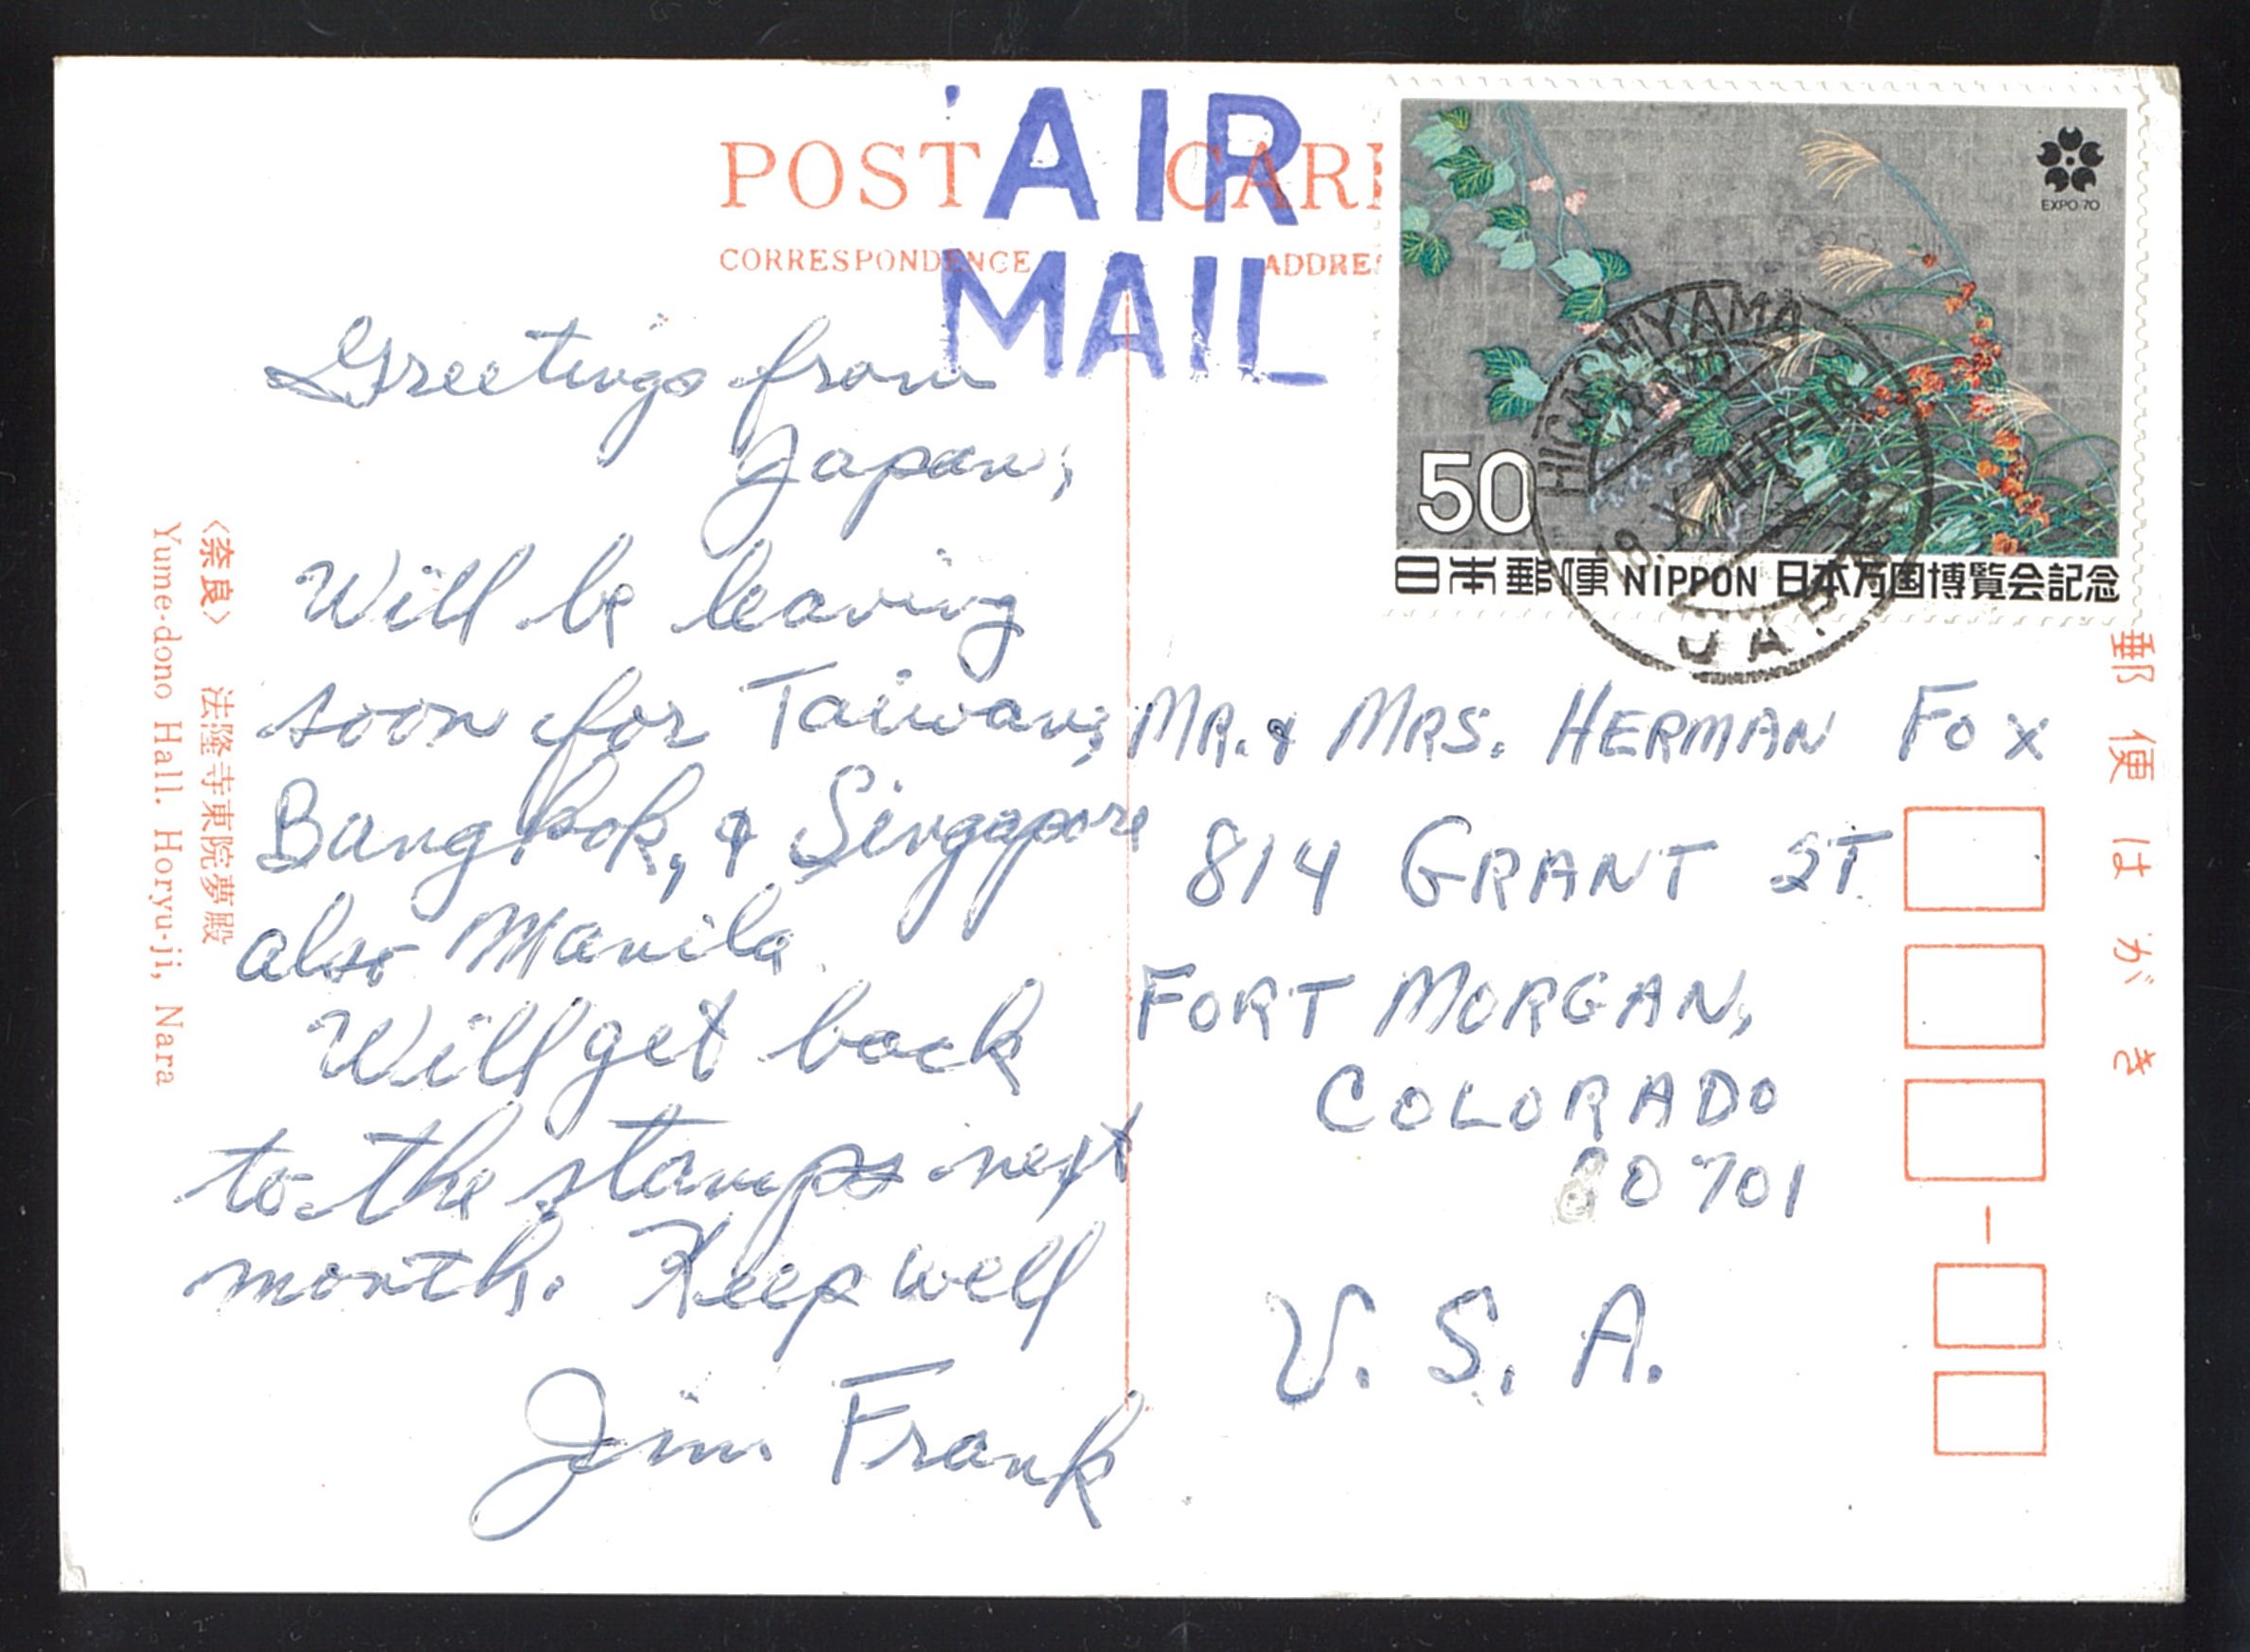 AIR
MAIL
POST CAR
CORRESPONDENCE
ADDRE
EXPO'70
50
日本郵便 NIPPON 日本万国博覧会記念
HIGASHIYAMA
18. X
12-18
JAPAN
Greetings from
Japan,
Will be leaving
soon for Taiwan,
Bangkok, & Singapore
also Manila.
Will get back
to the stamps next
month. Keep well
Jim Frank
MR. & MRS. HERMAN FOX
814 GRANT ST
FORT MORGAN,
COLORADO
80701
U.S.A.
郵便はがき
〈奈良〉 法隆寺東院夢殿
Yume-dono Hall. Horyu-ji, Nara